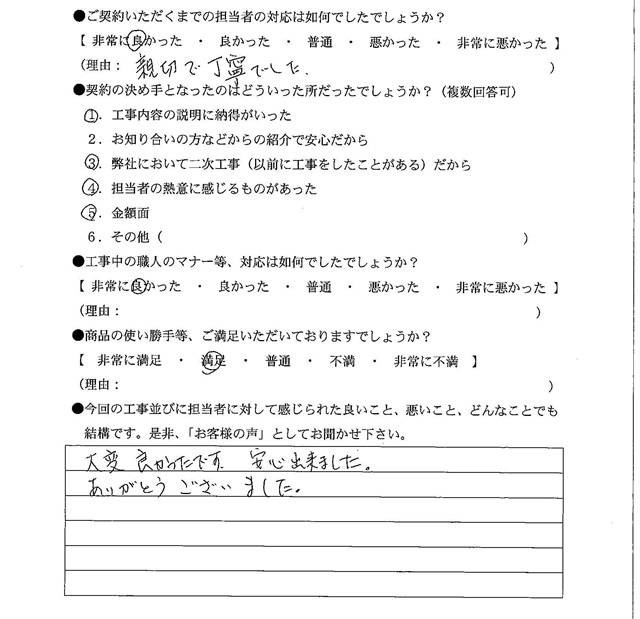 ●ご契約いただくまでの担当者の対応は如何でしたでしょうか？
【 非常に良かった ・ 良かった ・ 普通 ・ 悪かった ・ 非常に悪かった 】
（理由： 親切で丁寧でした. ）
●契約の決め手となったのはどういった所だったでしょうか？（複数回答可）
①．工事内容の説明に納得がいった
２．お知り合いの方などからの紹介で安心だから
③．弊社において二次工事（以前に工事をしたことがある）だから
④．担当者の熱意に感じるものがあった
⑤．金額面
６．その他（ ）
●工事中の職人のマナー等、対応は如何でしたでしょうか？
【 非常に良かった ・ 良かった ・ 普通 ・ 悪かった ・ 非常に悪かった 】
（理由： ）
●商品の使い勝手等、ご満足いただいておりますでしょうか？
【 非常に満足 ・ 満足 ・ 普通 ・ 不満 ・ 非常に不満 】
（理由： ）
●今回の工事並びに担当者に対して感じられた良いこと、悪いこと、どんなことでも
結構です。是非、「お客様の声」としてお聞かせ下さい。
大変 良かったです. 安心出来ました。
ありがとう ございました。